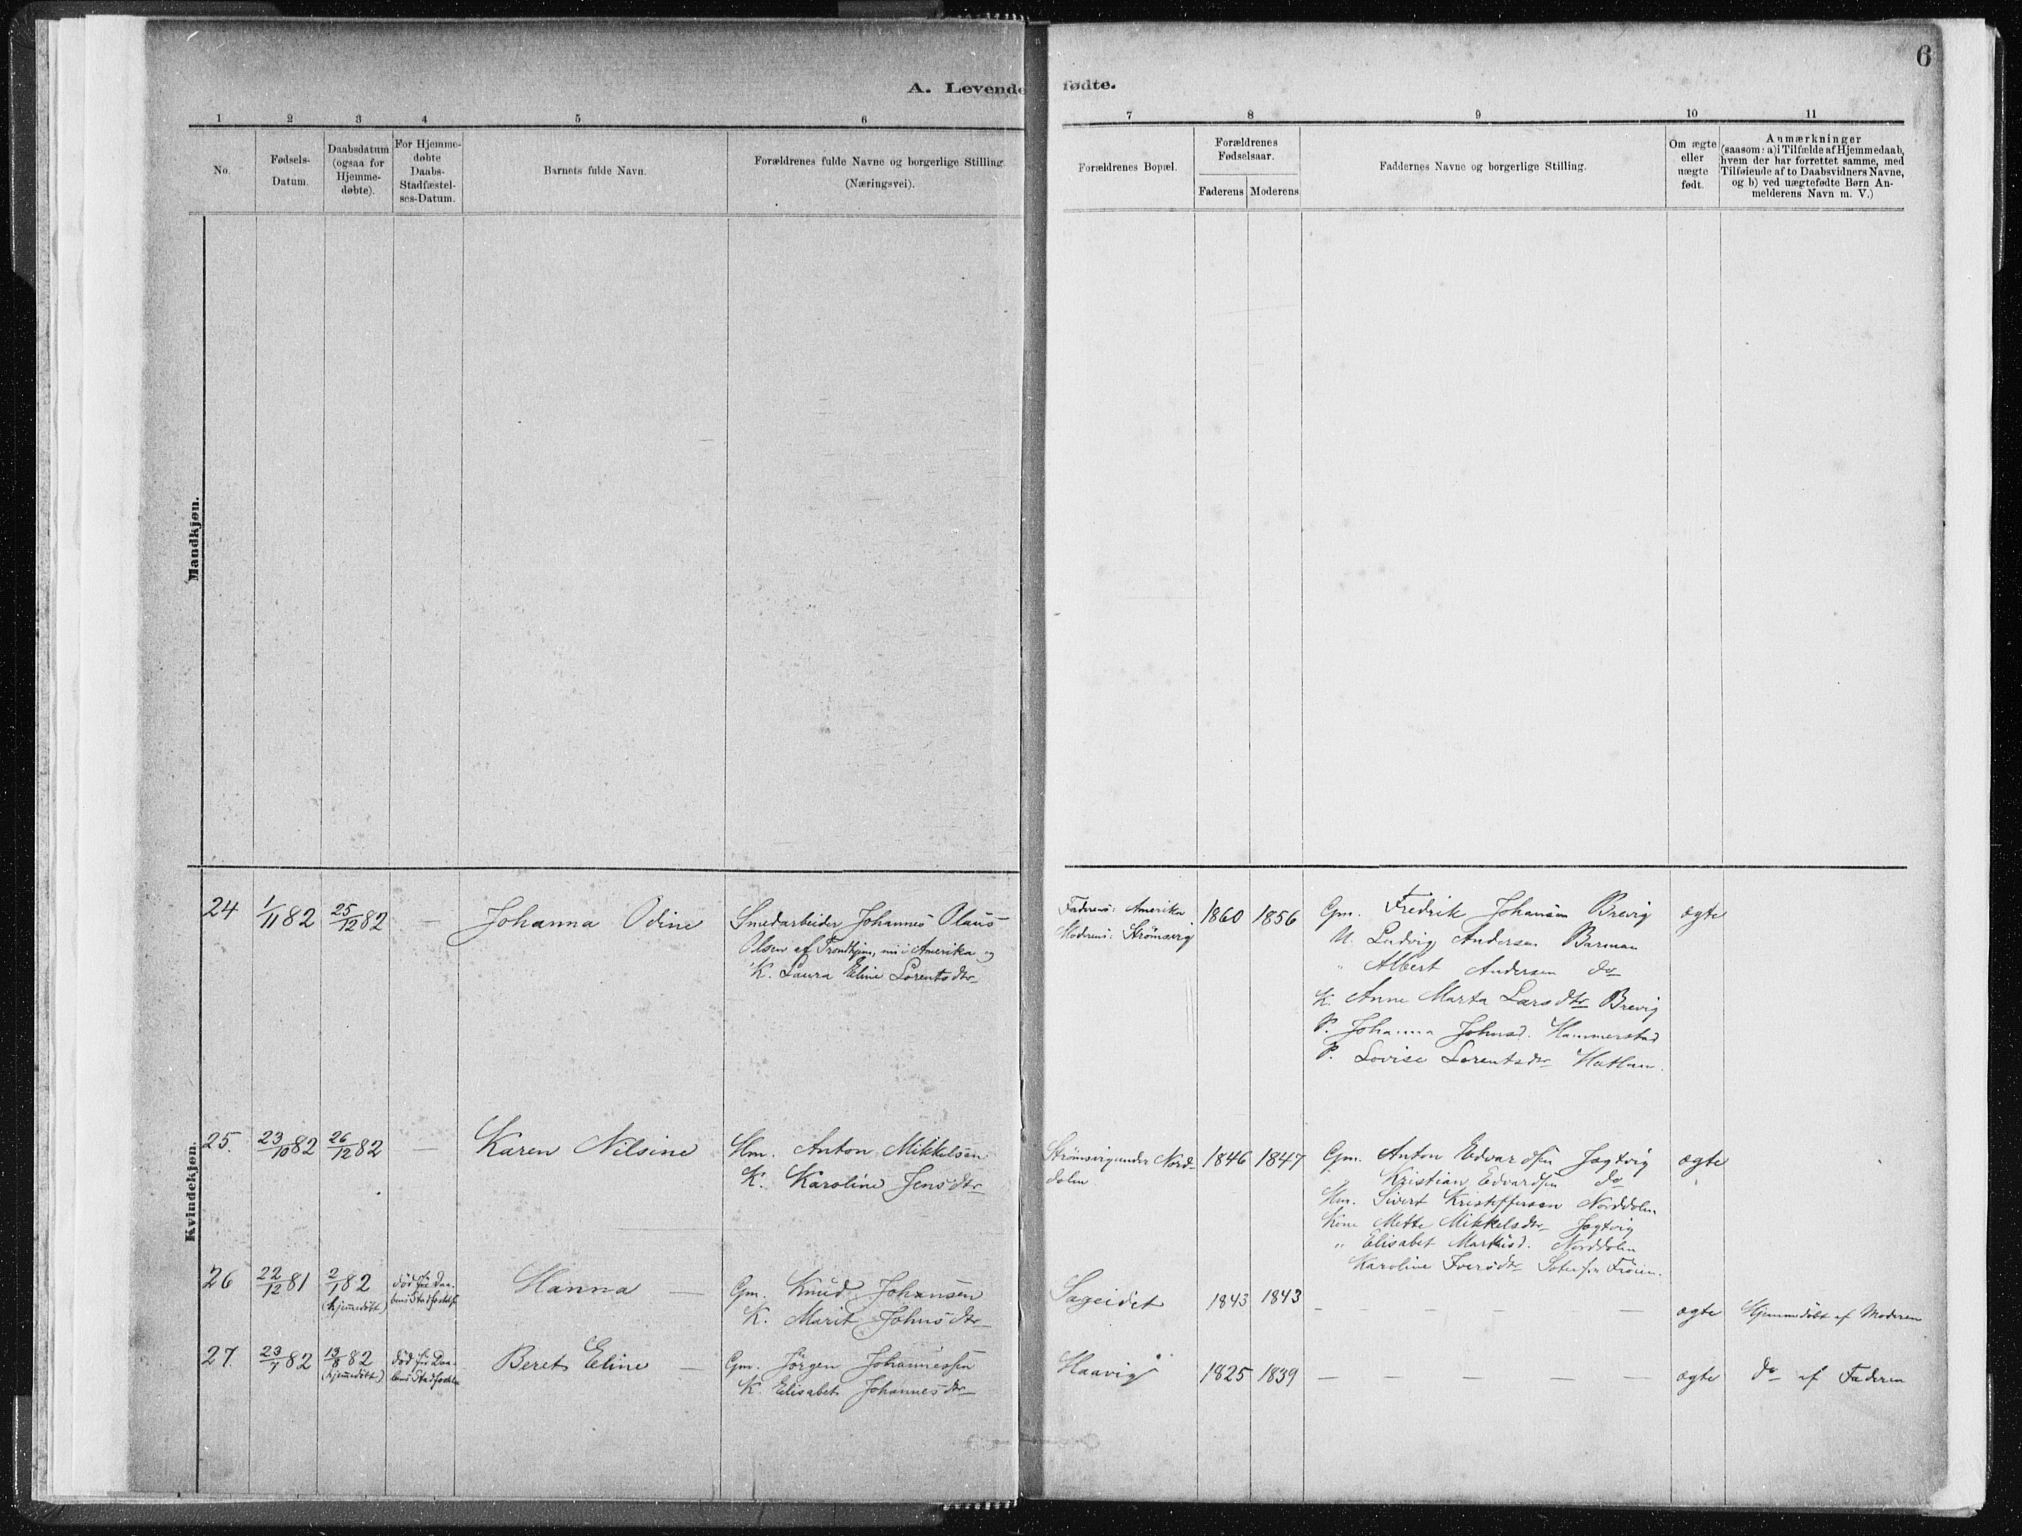 6
A. Levende fødte.
1 2 3 4 5 6 7 8 9 10 11
No.
Fødsels-
Datum.
Daabsdatum
(ogsaa for
Hjemme-
døbte).
For Hjemme-
døbte
Daabs-
Stadfæstel-
ses-Datum.
Barnets fulde Navn.
Forældrenes fulde Navne og borgerlige Stilling
(Næringsvei).
Forældrenes Bopæl.
Forældrenes
Fødselsaar.
Faderens Moderens
Faddernes Navne og borgerlige Stilling.
Om ægte
eller
uægte
født.
Anmærkninger
(saasom: a) i Tilfælde af Hjemmedaab,
hvem der har forrettet samme, med
Tilføiende af to Daabsvidners Navne,
og b) ved uægtefødte Børn An-
melderens Navn m. V.)
Mandkjøn.
Kvindekjøn.
24 1/11 82 25/12 82 — Johanna Odine
Smedarbeider Johannes Olaus
Olsen af Trondhjem, nu i Amerika og
K. Laura Eline Lorentsdtr
Faderens: Amerika
Moderens: Strömsvig
1860 1856
Gm. Fredrik Johansen Brevig
U. Ludvig Andersen Barman
" Albert Andersen do
K. Anne Marta Larsdtr Brevig
P. Johanna Johnsd. Hammerstad
P. Lovise Lorentsdtr Hatlan.
ægte
25. 23/10 82 26/12 82 — Karen Nilsine
Hm. Anton Mikkelsen
K. Karoline Jensdtr
Strömsvig under Nord-
dolen
1846 1847
Gm. Anton Edvardsen Jøgtvig
Kristian Edvardsen do
Hm. Sivert Kristoffersen Norddolen
Kone Mette Mikkelsdtr Jøgtvig
" Elisabet Markusd. Norddolen
Karoline Iversdtr
ægte
26 22/12 81 2/1 82
(hjemmedöbt)
död för Daa-
bens Stadfæstelse
Hanna —
Gm. Knud Johansen
K. Marit Johnsdtr
Sageidet
1843 1843 — — — — —
ægte Hjemmedöbt af Moderen
27. 23/7 82 13/8 82
(hjemmedöbt)
död för Daa-
bens Stadfæstelse
Beret Eline —
Gm. Jörgen Johannessen
K. Elisabet Johannesdtr
Haavig
1825 1839 — — — — —
ægte do af Faderen